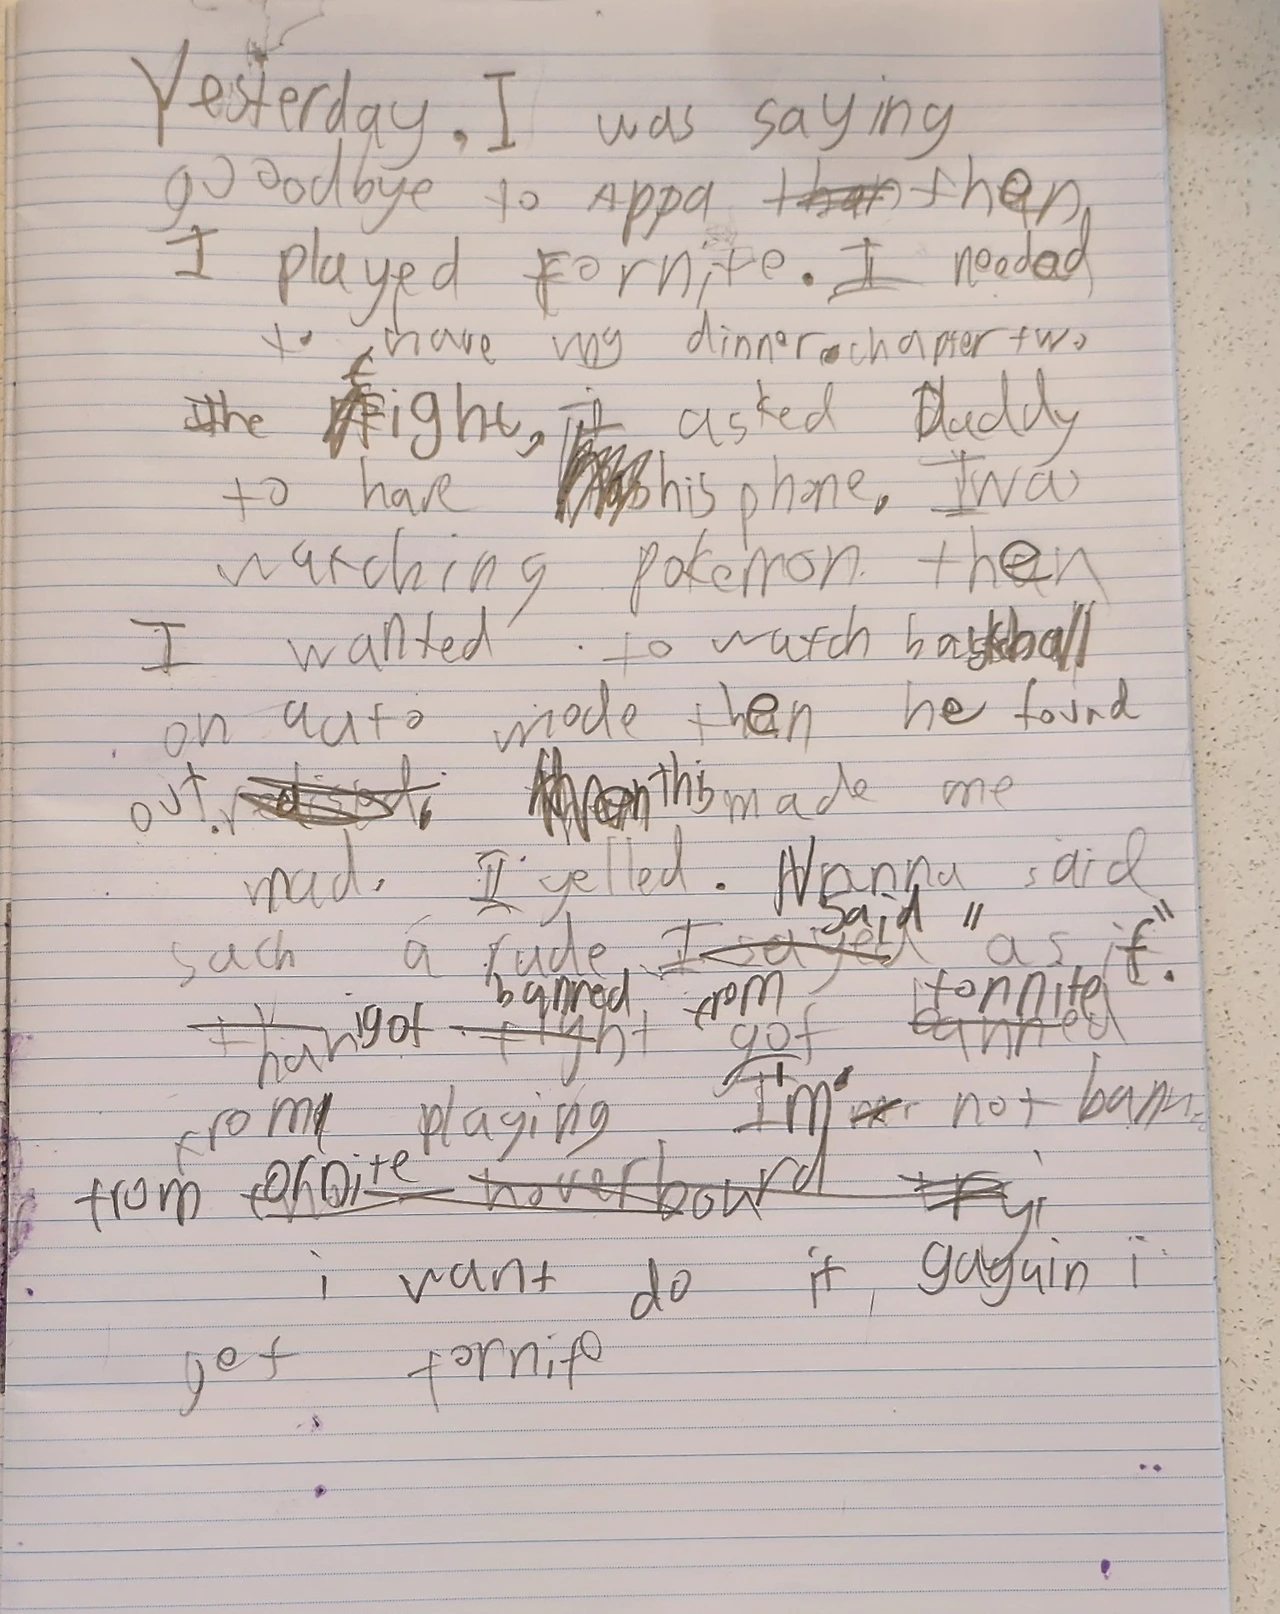 Yesterday, I was saying
goodbye to Appa then
I played Fornite. I needed
to have my dinner. chapter two
the fight, I asked Daddy
to have his phone. I was
watching pokemon. then
I wanted to watch basktball
on auto mode then he found
out. this made me
mad. I yelled. Nanna said
such a rude I said "as if".
igot banned from fonnite
from playing I'm not bann
from fornite
i want do it gagain i
get fornite